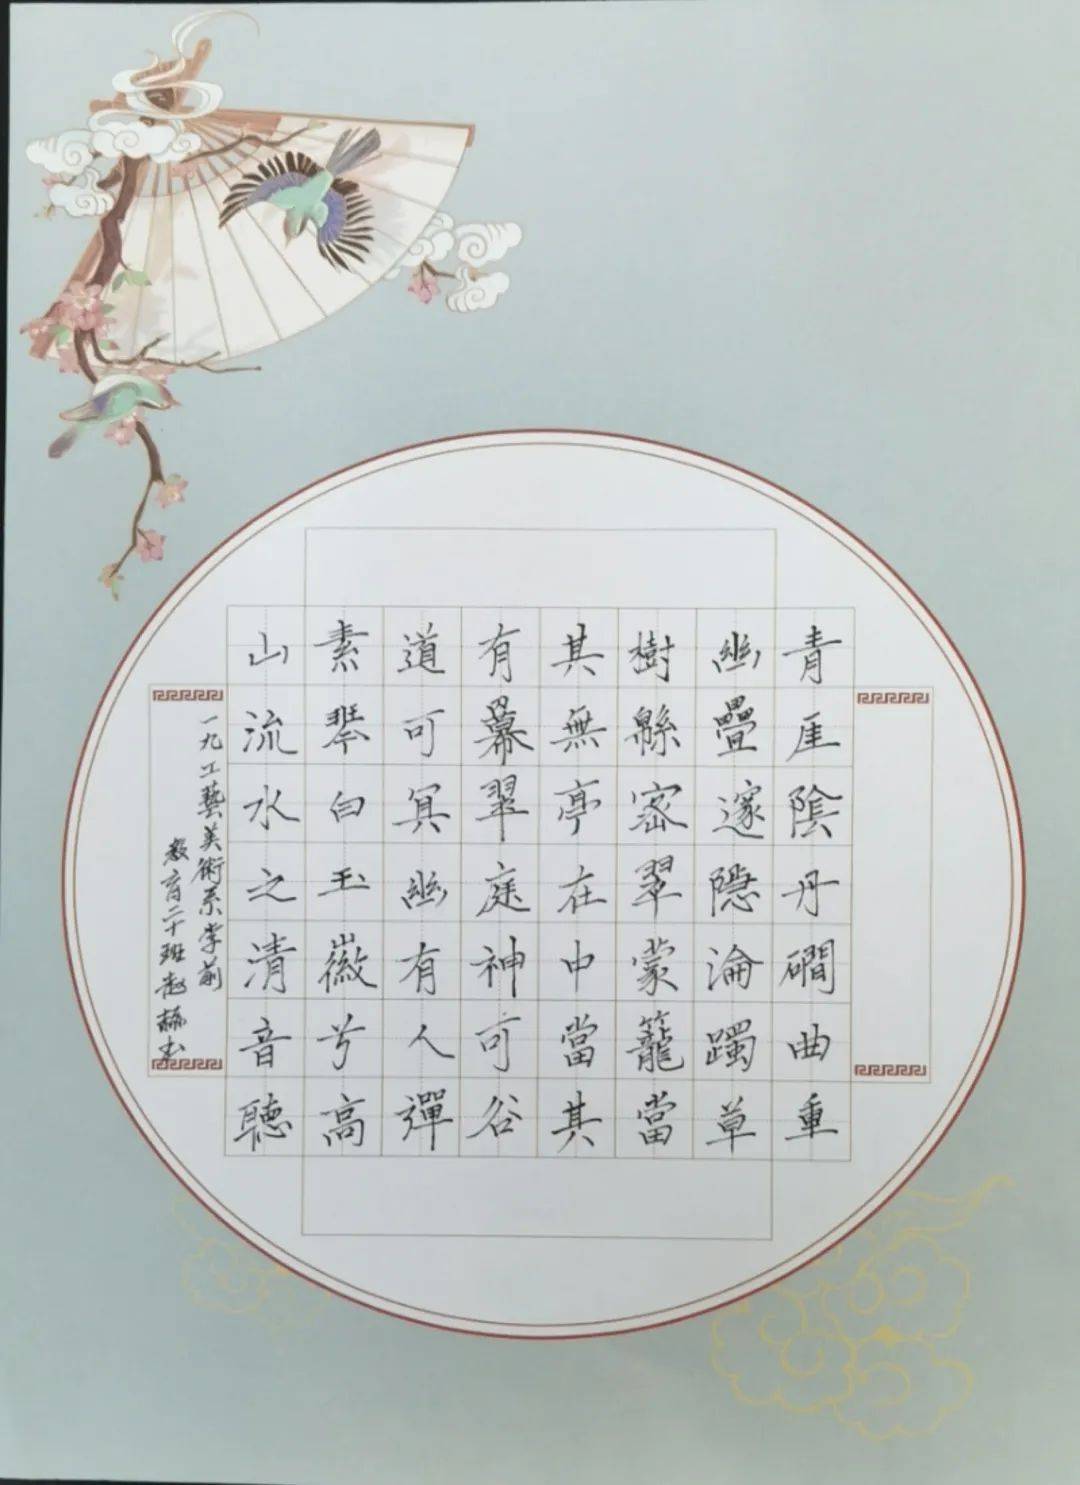 青厓陰丹磵曲重
幽疊邃隱淪躅草
樹緜宻翠蒙籠當
其無亭在中當其
有幕翠庭神可谷
道可冥幽有人彈
素琴白玉徽兮高
山流水之清音聽
一九工藝美術系學前
教育二十班赵赫书